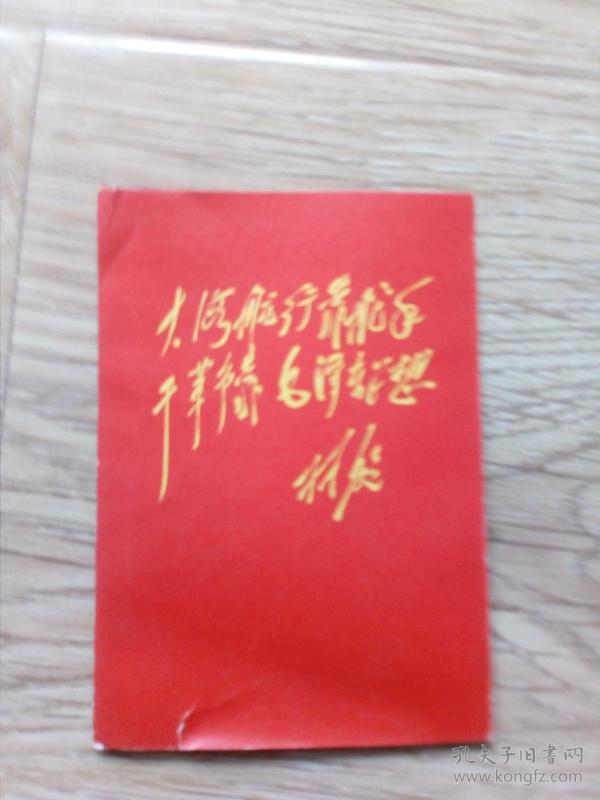 大海航行靠舵手
干革命靠毛泽东思想
林彪
孔夫子旧書网
www.kongfz.com